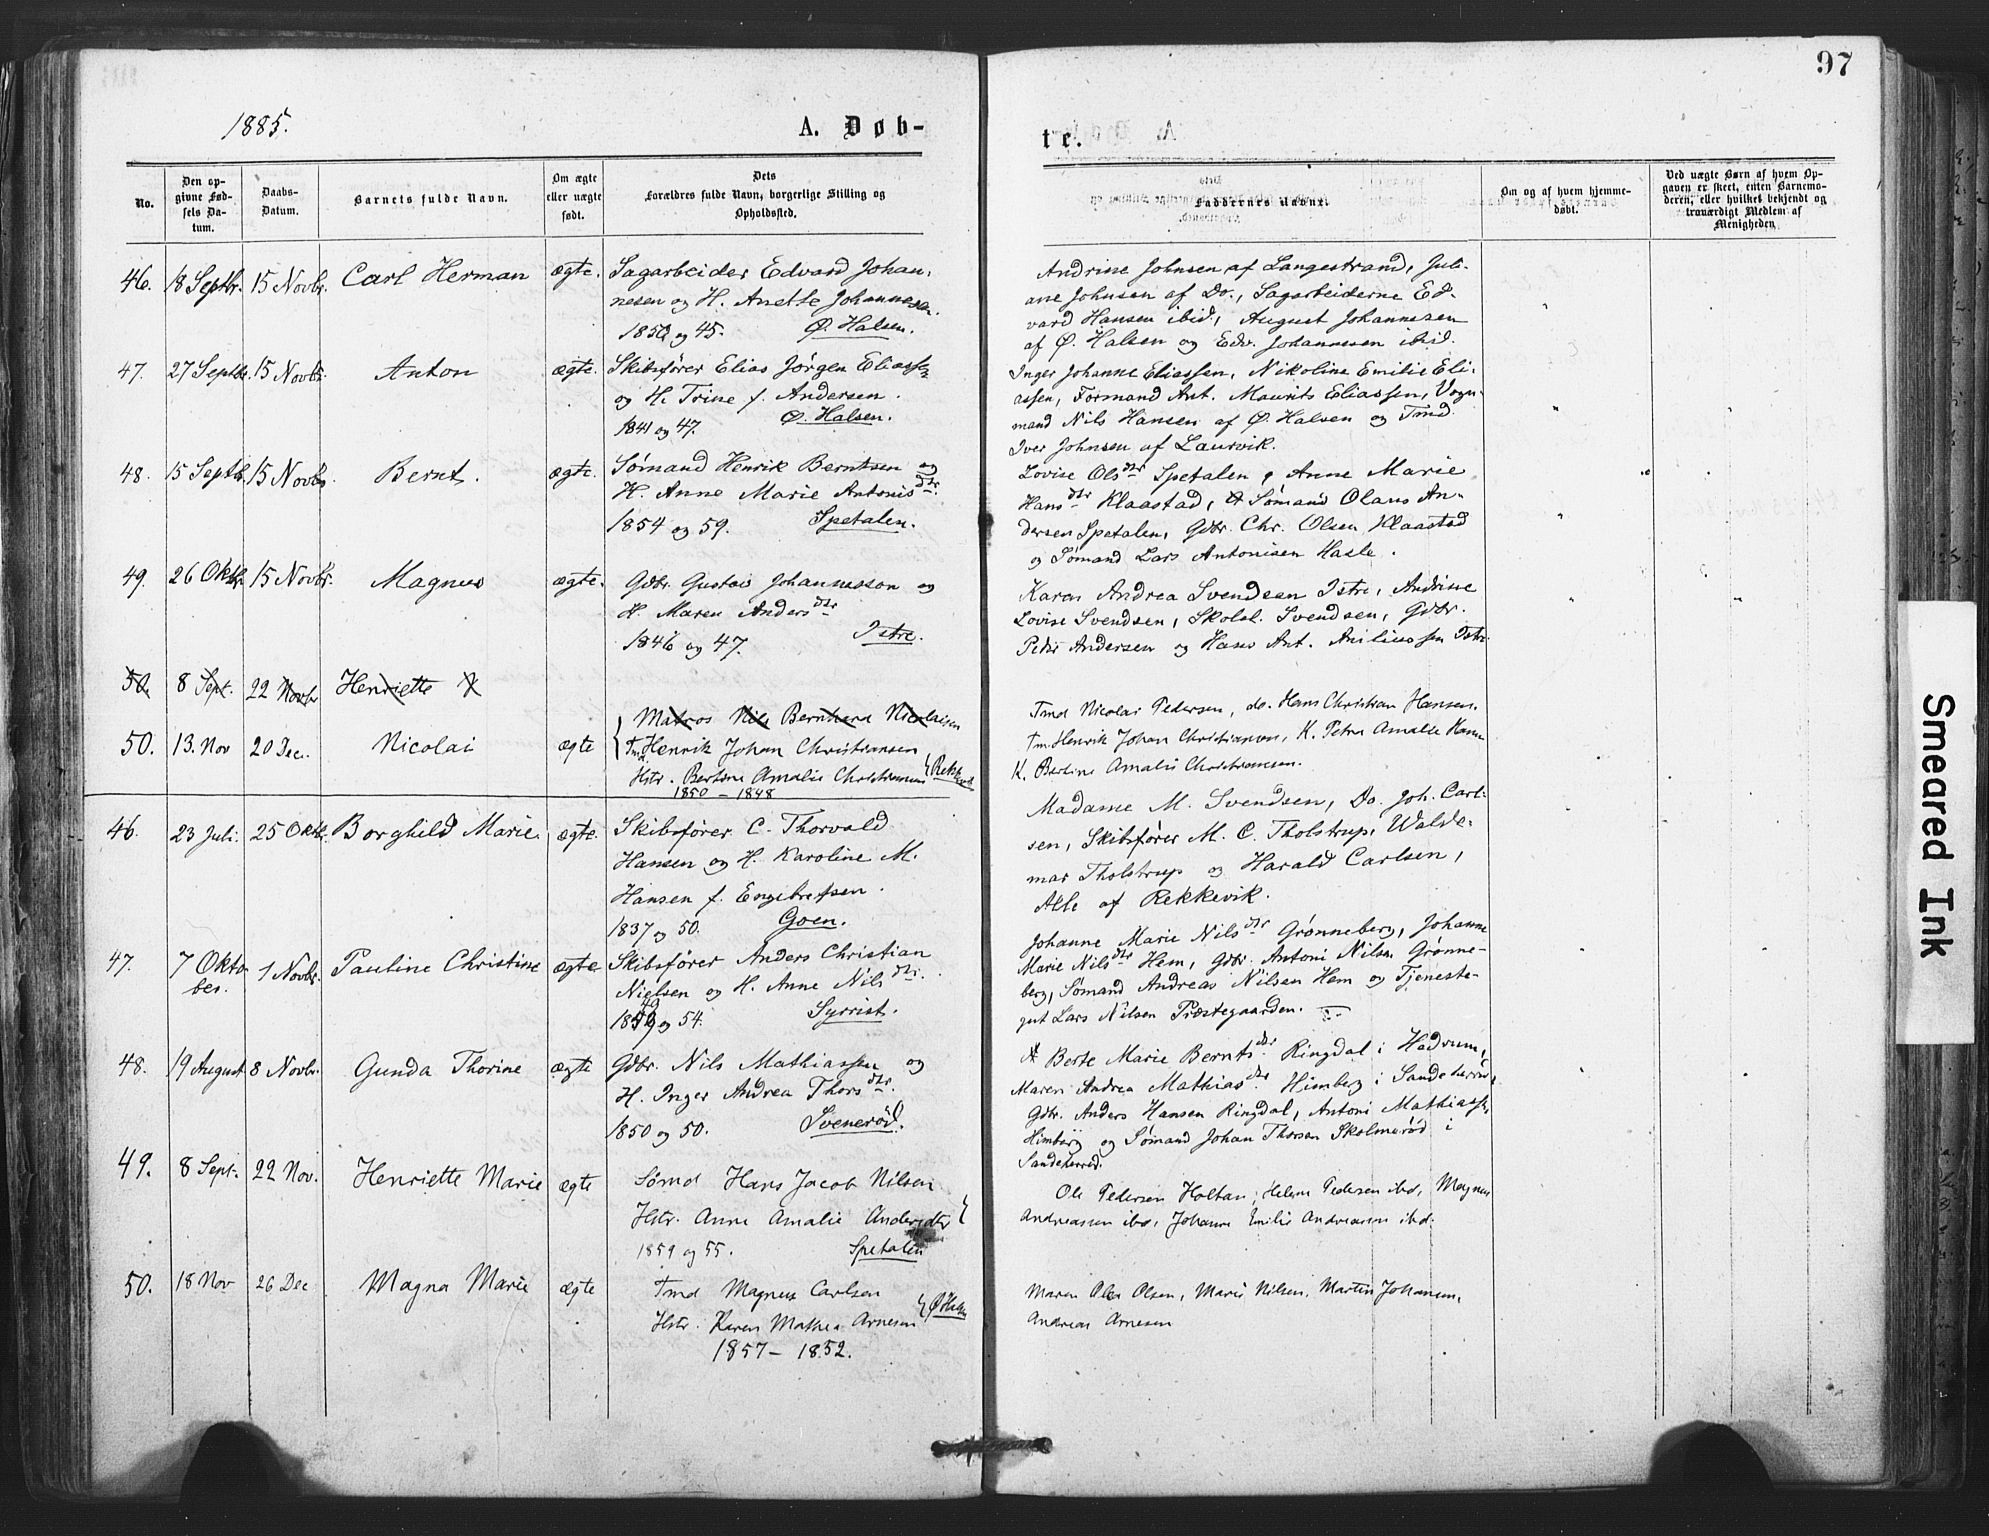 97
1885.
A. Døb-
te.
No.
Den op-
givne Fød-
sels Da-
tum.
Daabs-
Datum.
Barnets fulde Navn.
Om ægte
eller uægte
født.
Dets
Forældres fulde Navn, borgerlige Stilling og
Opholdssted.
Faddernes Navne.
Om og af hvem hjemme-
døbt.
Ved uægte Børn af hvem Op-
gaven er skeet, enten Barnemo-
deren, eller hvilket bekjendt og
troværdigt Medlem af
Menigheden
46. 18 Septbr. 15 Novbr. Carl Herman ægte. Sagarbeider Edvard Johan-
nesen og H. Anette Johannesen.
1852 og 45. Ø. Halsen.
Andrine Johnsen af Langestrand, Juli-
ane Johnsen af Do., Sagarbeiderne Ed-
vard Hansen ibid, August Johannesen
af Ø. Halsen og Edv. Johannesen ibid.
47. 27 Septbr. 15 Novbr. Anton ægte. Skibsfører Elias Jørgen Eliassen
og H. Trine f. Andersen.
1841 og 47. Ø. Halsen.
Inger Johanne Eliassen, Nikoline Emilie Eli-
assen, Formand Ant. Maurits Eliassen, Vogn-
mand Nils Hansen af Ø. Halsen og Tmd.
Iver Johnsen af Laurvik.
48. 15 Septbr. 15 Novbr. Bernt. ægte. Sømand Henrik Berntsen og
H. Anne Marie Antonisdtr.
1854 og 59. Spetalen.
Lovise Olsdtr Spetalen, Anne Marie
Hansdtr Klaastad, Sømand Olaus An-
dersen Spetalen, Gdbr. Chr. Olsen Klaastad
og Sømand Lars Antonisen Hasle.
49. 26 Oktbr. 15 Novbr. Magnus ægte. Gdbr. Gustav Johannesson og
H. Maren Andersdtr
1846 og 47. Istre.
Karen Andrea Svendsen Istre, Andrine
Lovise Svendsen, Skolel. Svendsen, Gdbr.
Peder Andersen og Hans Ant. Aniliussen Istre.
50. 8 Sept. 22 Novbr Henriette
Matros Nils Bernhard Nicolaisen
50. 13. Nov 20 Dec. Nicolai ægte Tmd. Henrik Johan Christiansen
Hstr. Bertine Amalie Christiansen
1850 - 1848
Tmd Nicolai Pedersen, do. Hans Christian Hansen.
Tm. Henrik Johan Christiansen, K. Petra Amalie Hansen
K. Bertine Amalie Christiansen.
46. 23 Juli. 25 Oktb. Borghild Marie. ægte. Skibsfører C. Thorvald
Hansen og H. Karoline M.
Hansen f. Engebretsen.
1837 og 50. Goen.
Madame M. Svendsen, Do. Joh. Carl-
sen, Skibsfører M. C. Tholstrup, Walde-
mar Tholstrup og Harald Carlsen,
Alle af Rekkevik.
47. 7 Okto-
ber. 1 Novbr. Pauline Christine ægte Skibsfører Anders Christian
Nielsen og H. Anne Nilsdtr.
1849 og 54. Syrrist.
Johanne Marie Nilsdtr Grønneberg, Johanne
Marie Nilsdtr Hem, Gdbr. Antoni Nilsen Grønne-
berg, Sømand Andreas Nilsen Hem og Tjeneste-
gut Lars Nilsen Præstegaarden.
48. 19 August 8 Novbr. Gunda Thorine ægte Gdbr. Nils Mathiassen og
H. Inger Andrea Thorsdtr.
1850 og 50. Svenerød.
Berte Marie Berntsdtr. Ringdal i Hedrum,
Maren Andrea Mathiasdtr. Himberg i Sandeherred,
Gdbr. Anders Hansen Ringdal, Antoni Mathiassen
Himberg og Sømand Johan Thorsen Skolmerød i
Sandeherred.
49. 8 Sept. 22 Nov. Henriette Marie ægte Sømd Hans Jacob Nilsen
Hstr. Anne Amalie Andersdtr
1859 og 55. Spetalen
Ole Pedersen Holtan, Helene Pedersen ibd, Magnus
Andreassen ibd, Johanne Emilie Andreassen ibd.
50. 18 Nov 26 Dec Magna Marie ægte Tmd Magnus Carlsen
Hstr. Karen Mathea Arnesen Ø Halsen
1857 - 1852.
Maren Olea Olsen, Marie Nilsen, Martin Johansen,
Andreas Arnesen
Smeared Ink